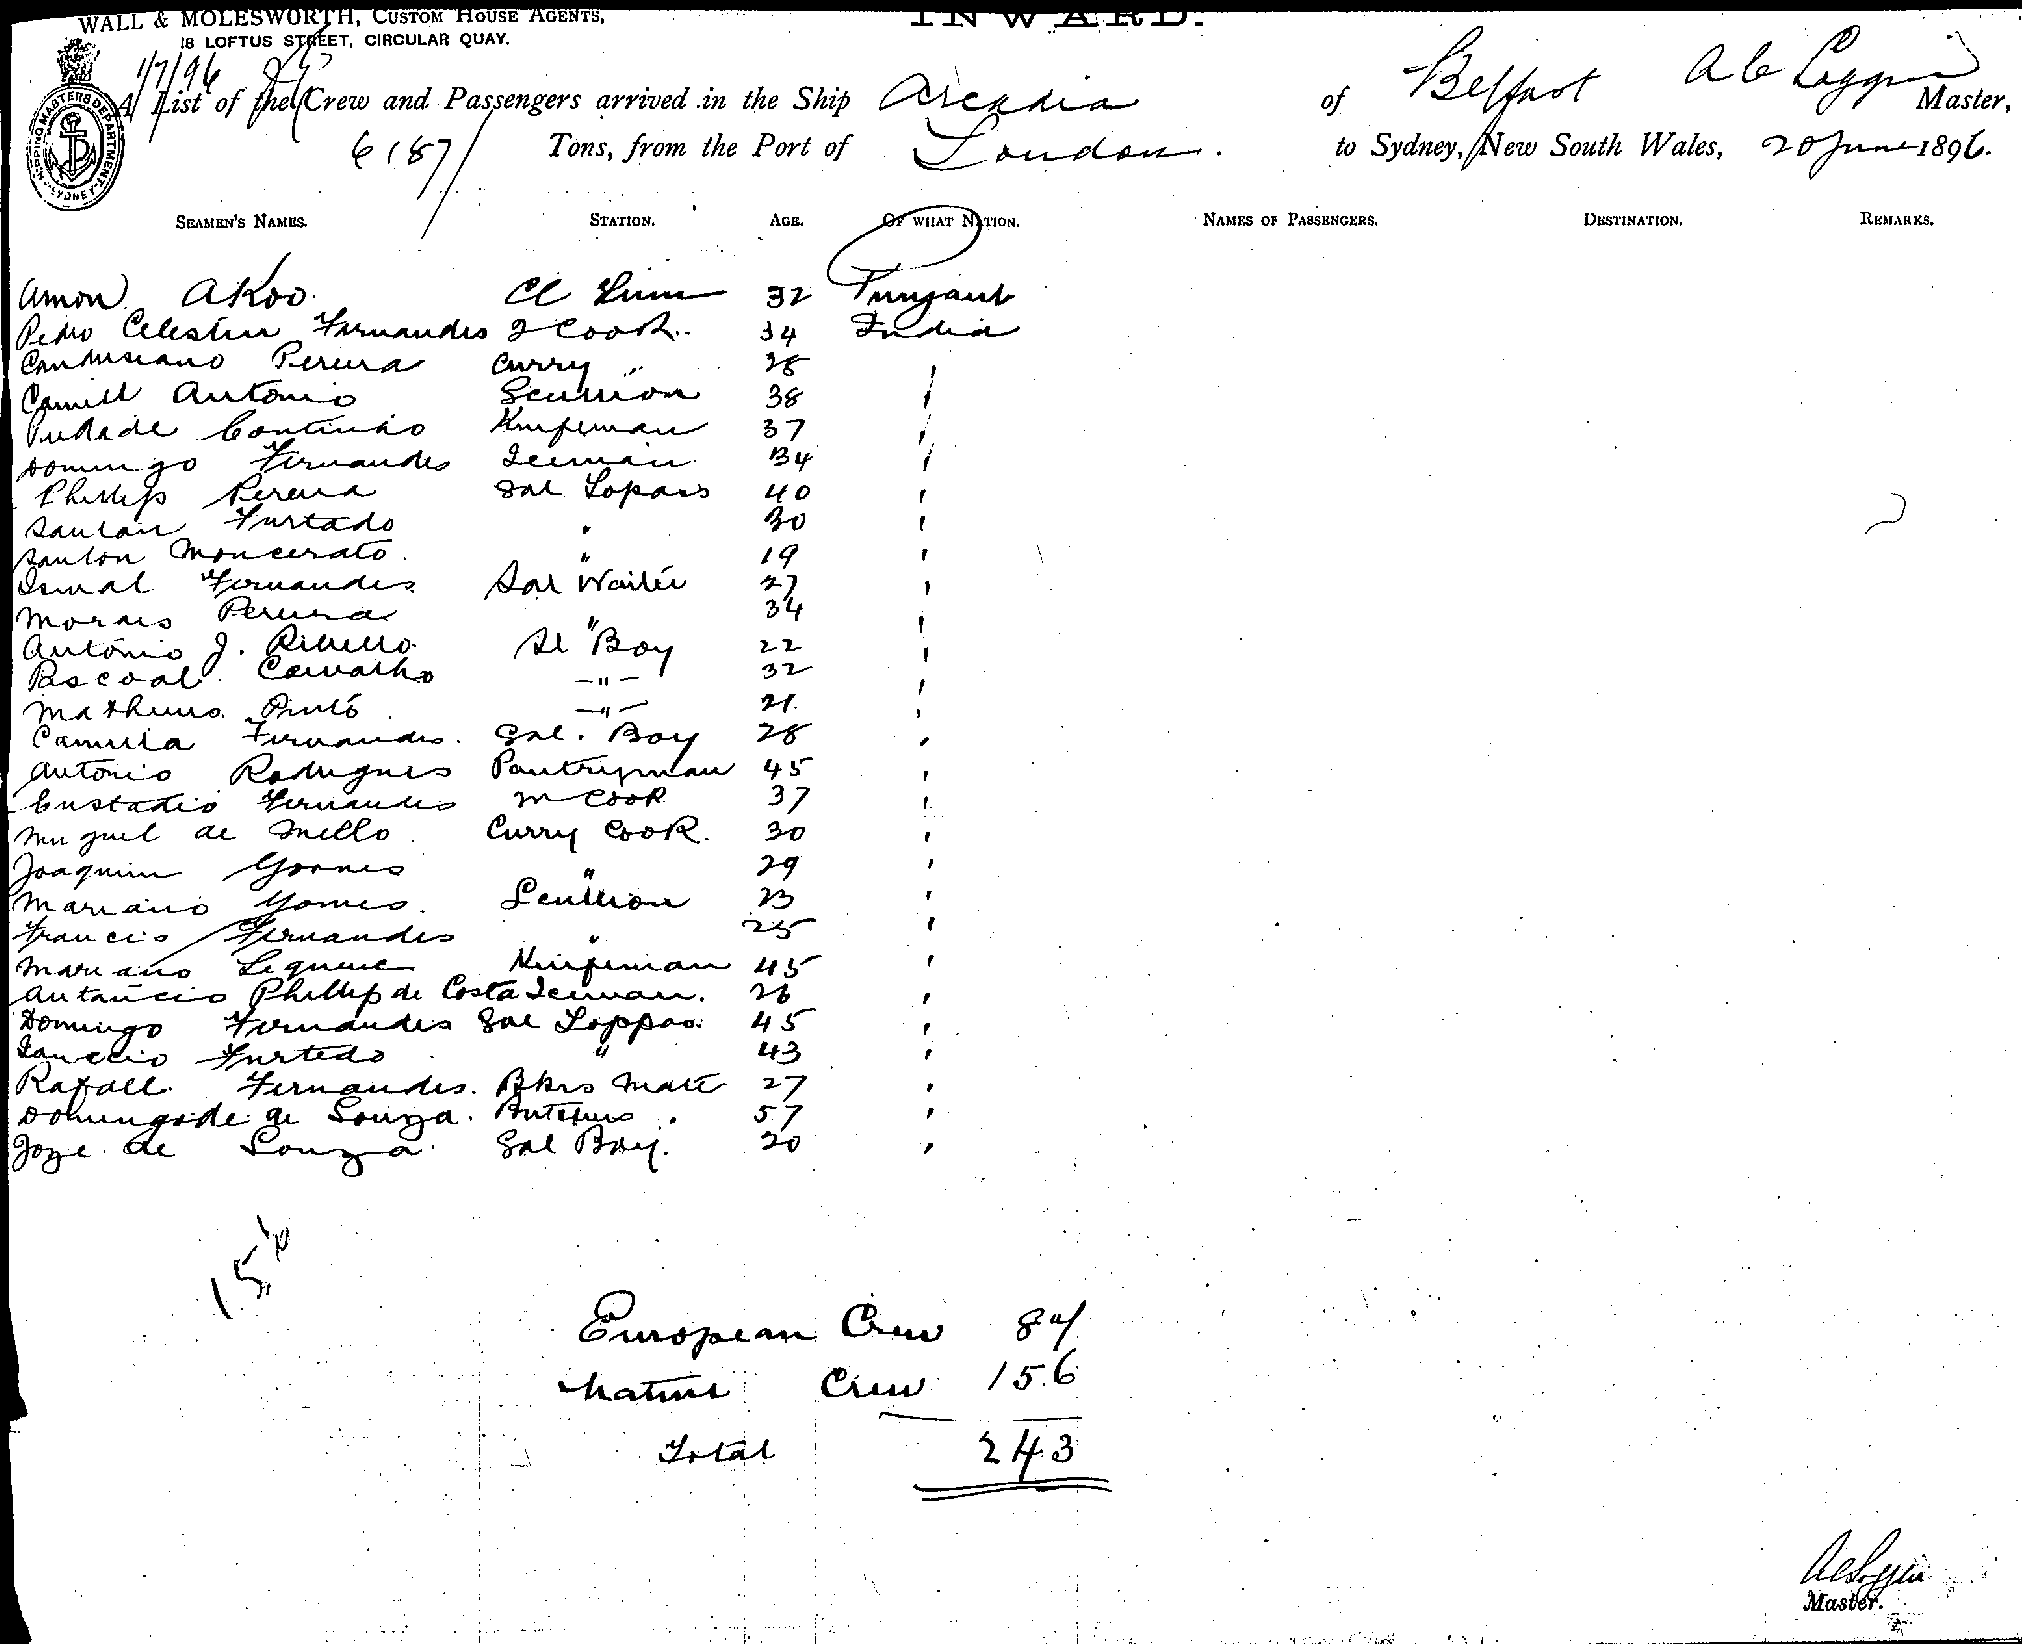 WALL & MOLESWORTH, CUSTOM HOUSE AGENTS,
18 LOFTUS STREET, CIRCULAR QUAY.
INWARD.
1/7/96
SHIPPING MASTERS DEPARTMENT SYDNEY
A List of the Crew and Passengers arrived in the Ship Arcadia of Belfast A C Master,
6187 Tons, from the Port of London. to Sydney, New South Wales, 20 June 1896.
SEAMEN'S NAMES. STATION. AGE. OF WHAT NATION. NAMES OF PASSENGERS. DESTINATION. REMARKS.
Amon Akoo. 32
Pedro Celestin Fernandes 2 Cook. 34 India
Pereira Curry " 28 "
Camill Antonio Scullion 38 "
Piedade Continho Knifeman 37 "
Domingo Fernandes Iceman 34 "
Phillip Pereira Sal Topass 40 "
Santan Furtado " 30 "
Santon Moncerato. " 19 "
Fernandes Sal Waiter 27 "
Morais Pereira " 34 "
Antonio J. Ribeiro. Boy 22 "
Pascoal Carvalho -"- 32 "
Matheus Pinto -"- 21. "
Camilla Fernandes. Sal. Boy 28 "
Antonio Rodrigues Pantryman 45 "
Eustatio Fernandes m Cook 37 "
Miguel de Mello Curry Cook. 30 "
Joaquim Gomes " 29 "
Mariano Gomes. Scullion 23 "
Francis Fernandes " 25 "
Mariano Knifeman 45 "
Phillip de Costa Iceman. 26 "
Domingo Fernandes Sal Toppas. 45 "
Furtedo " 43 "
Rafall Fernandes. Bkrs Mate 27 "
de Souza. 57 "
Joze de Souza. Sal Boy. 20 "
European Crew 87
Native Crew 156
Total 243
Master.